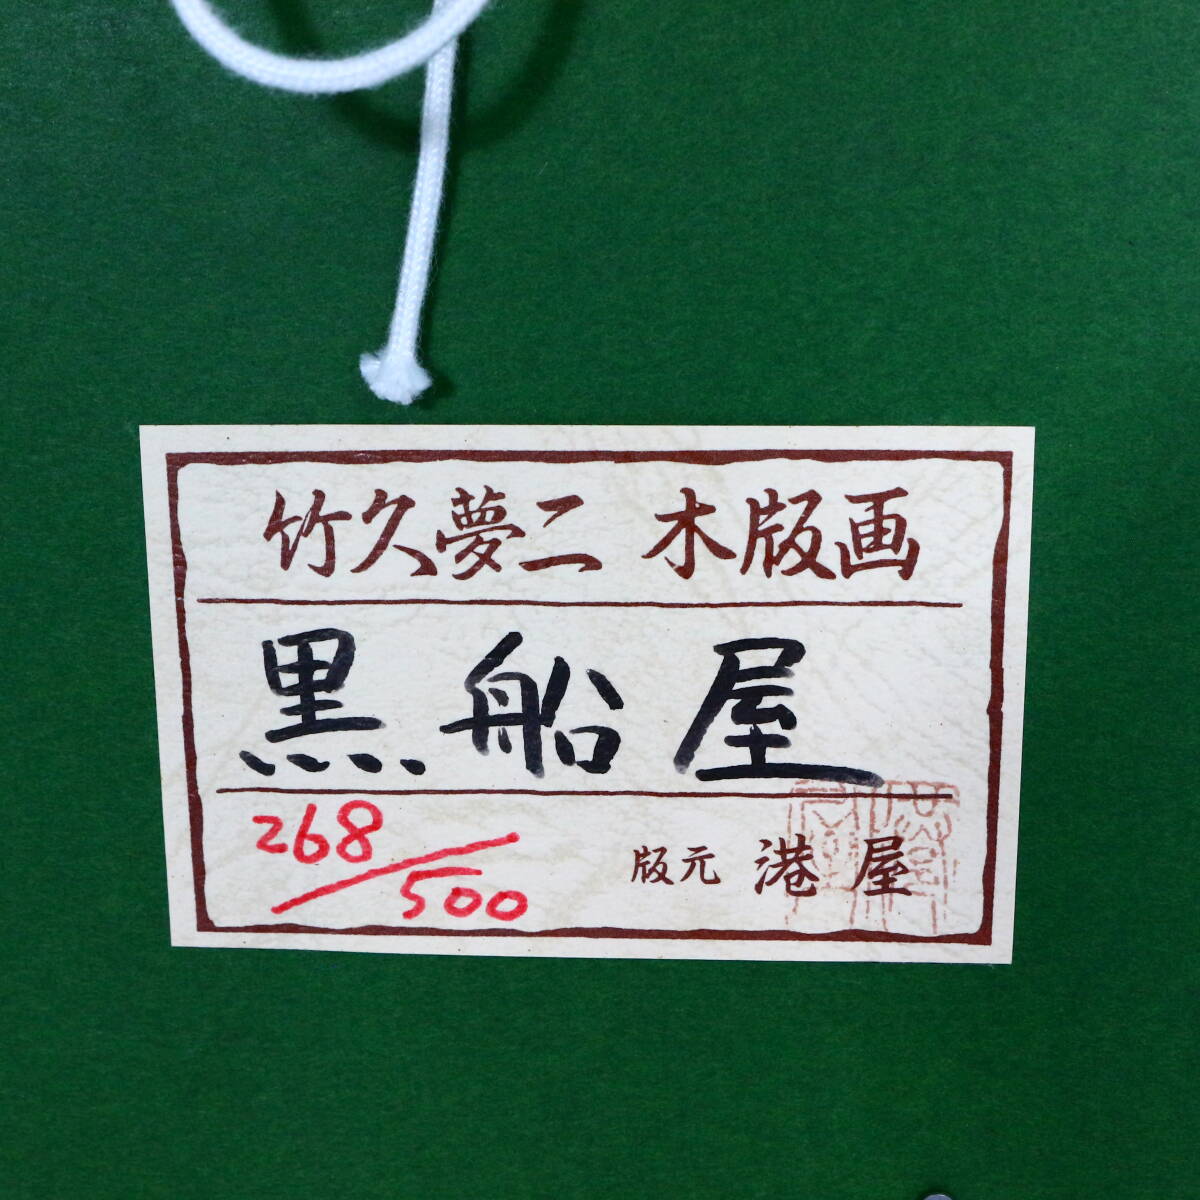 竹久夢二 木版画
黒船屋
268/500
版元 港屋